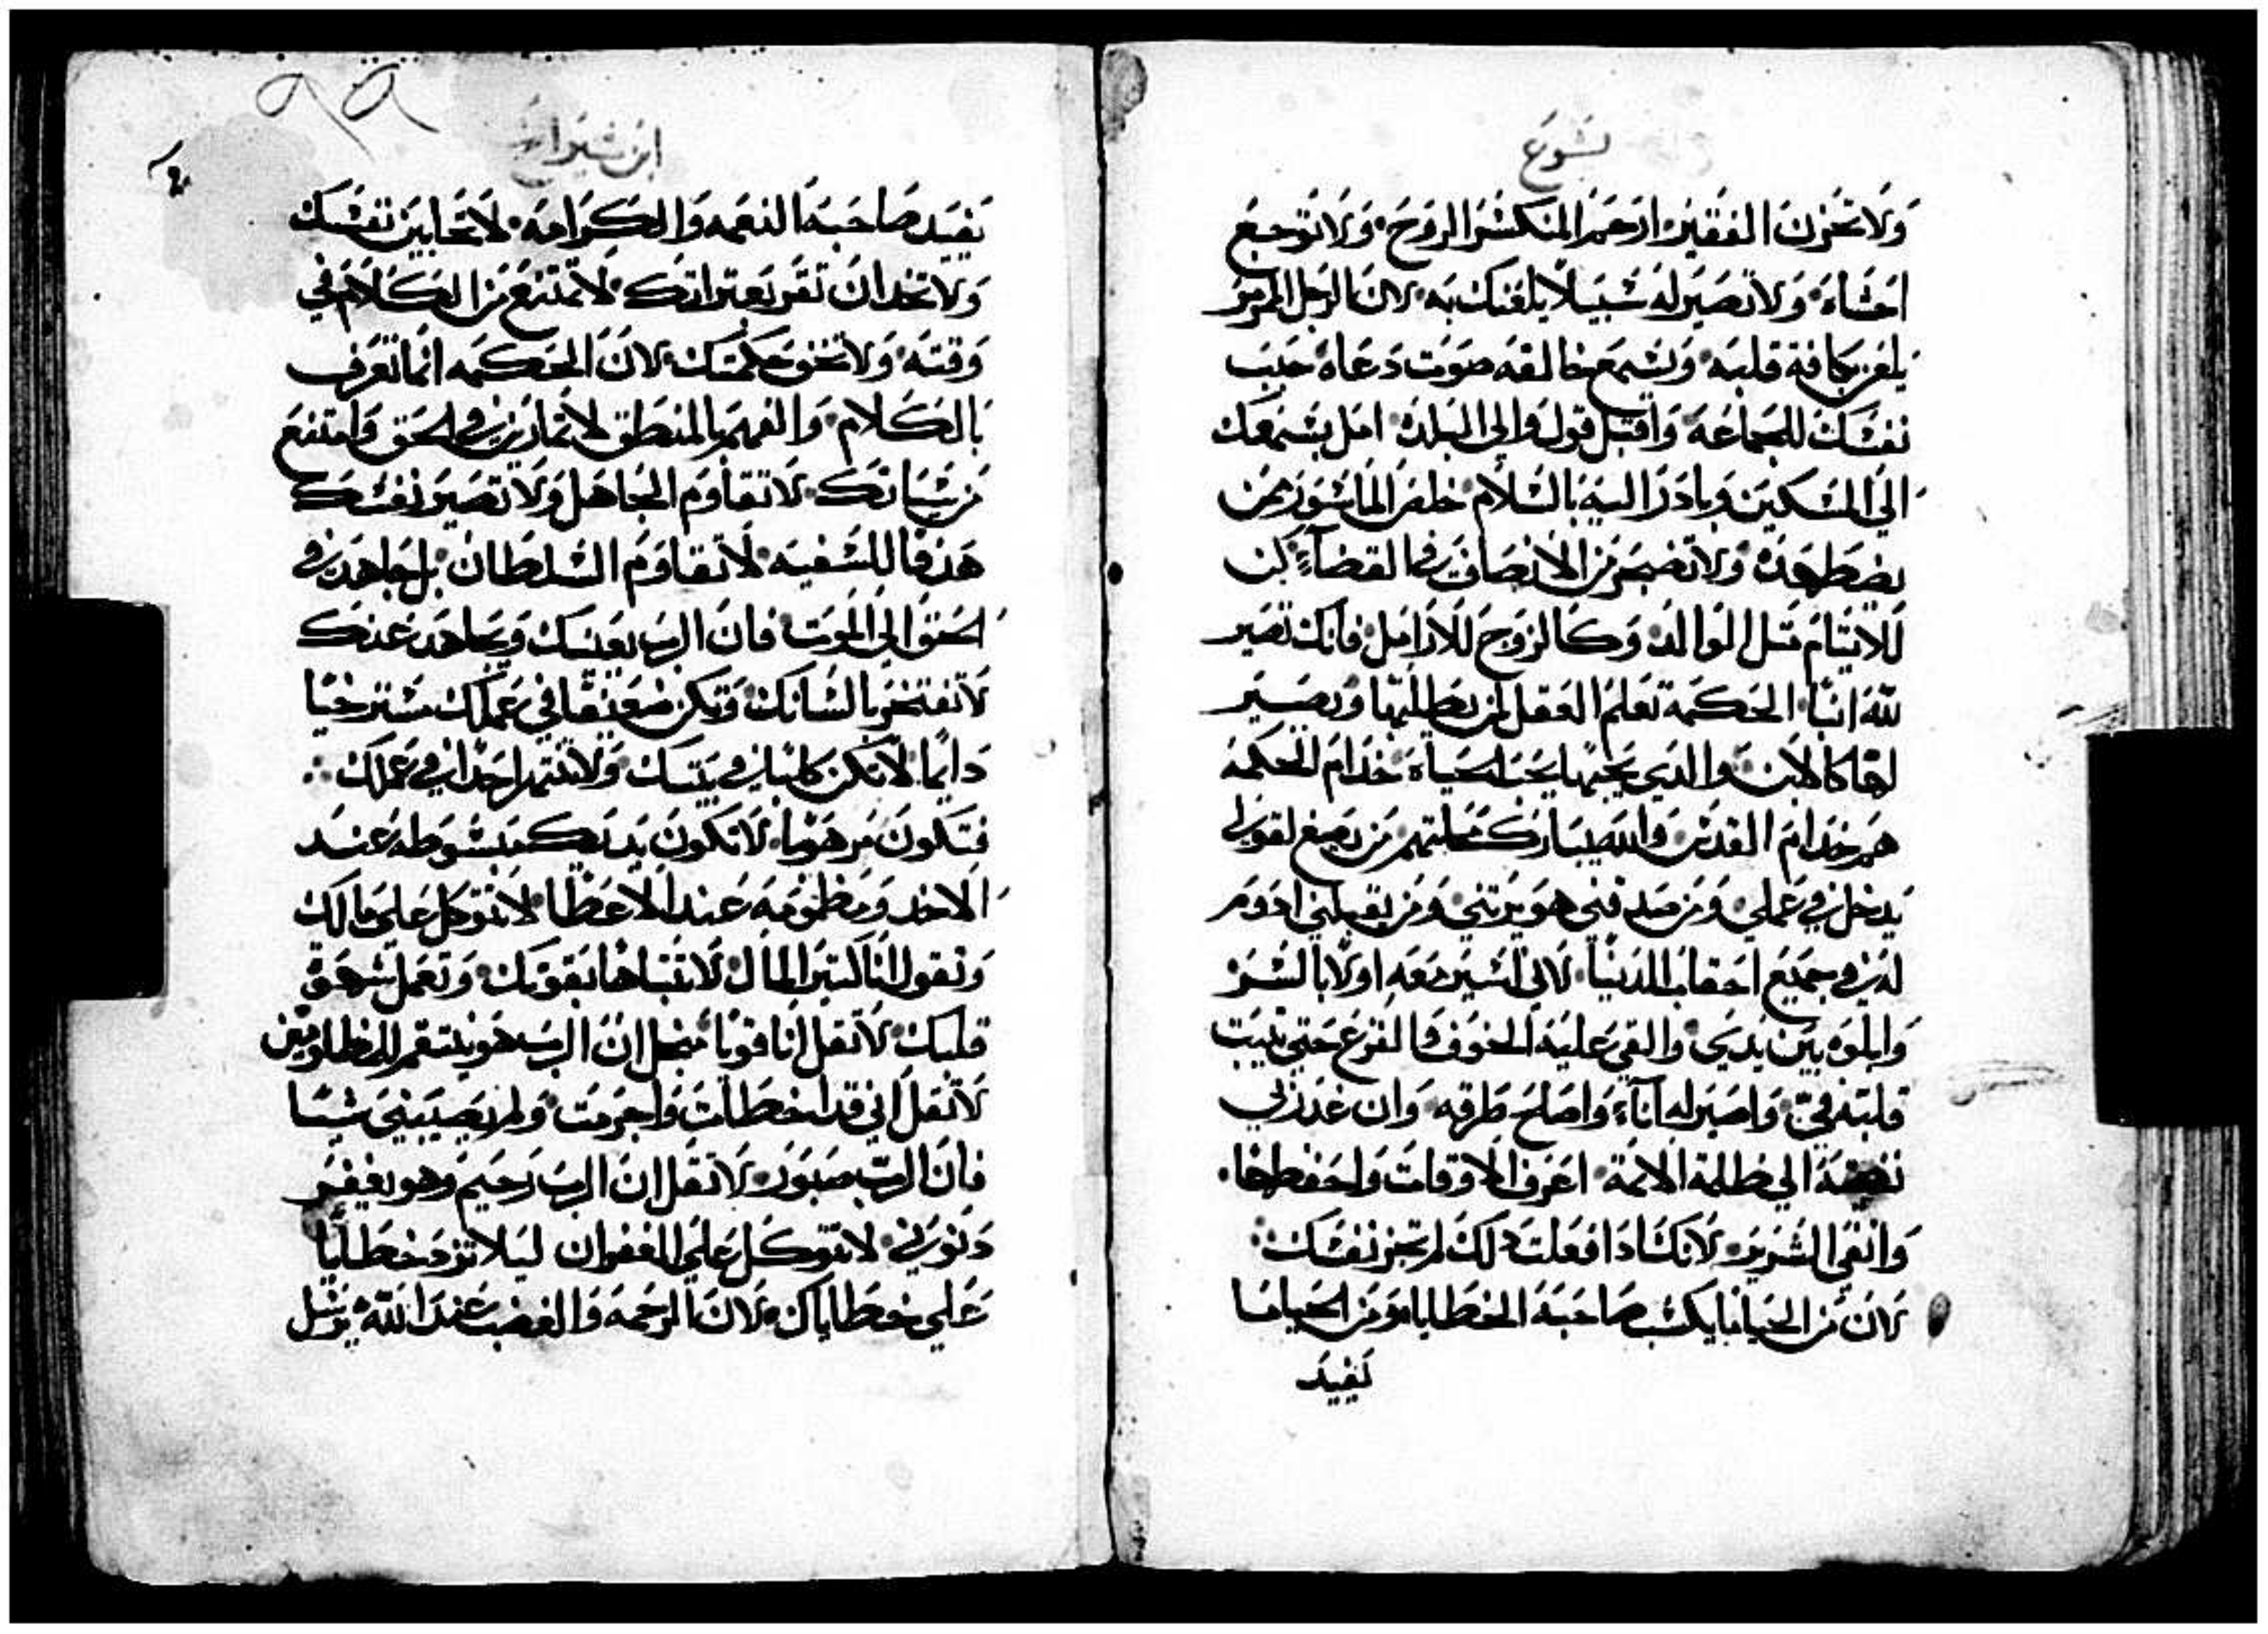 يشوع
ولا تحزن الفقير ارحم المنكسر الروح ولا توجع
احشاه ولا تصير له سبيلا يلعنك به لان الرجل المرمر
يلعن بكافة قلبه ويسمع خالقه صوت دعاه حبب
نفسك للجماعه واقبل قول والي البلد امل بسمعك
الي المسكين وبادر اليه بالسلام خلص الماسور ممن
يضطهده ولا تضجر من الانصاف في القضاء كن
للايتام متل الوالد وكالزوج للارامل فانك تصير
لله ابنا الحكمة تعلم العقل لمن يطلبها ويصير
لها كالابن والدي يحبها يحب الحياه خدام الحكمه
هم خدام القدس والله يبارك محلتهم من يصغ لقولي
يدخل في عملي ومن صدقني هو يرتني ومن يقبلني ادوم
له في جميع احقاب الدنيا لاني اسير معه اولا بالسر
وابلوه بين يدي والقي عليه الخوف والفزع حتي تتبت
قلبه في واصبر له اناء واصلح طرقه وان غدر بي
الي ظلمة الامة اعرف الاوقات واحفظها
واتقي الشرير لانك ادا فعلت دلك لم تخز نفسك
لان من الحيا ما يكسب صاحبه الخطايا ومن الحيا ما
يفيد
ابن شيراخ
يفيد صاحبه النعمه والكرامه لا تحابين نفسك
ولا تخد ان تقر بعتراتك لا تمتنع من الكلام في
وقته ولا تخف حكمتك لان الحكمه انما تعرف
بالكلام والفهم بالمنطق لا تمارين في الحق وامتنع
من لا تقاوم الجاهل ولا تصير نفسك
هدفا للسفيه لا تقاوم السلطان بل جاهد في
الحق الي الموت فان الرب يعينك ويجاهد عنك
لا تفتخر بالسانك وتكن ضعيفا في عملك مسترخيا
دايما لا تكن في بيتك ولا تنتهر احدا في عملك
فتكون مرهوبا لا تكون يديك مبسوطه عند
الاخد ومضمومه عند الاعطا لا تتوكل علي مالك
وتقول انا كتير المال لا تتباها بقوتك وتعمل شهوة
قلبك لا تقل انا قويا فان الرب هو ينتقم للمظلومين
لا تقل اني قد اخطات واجرمت ولم يصيبني شيا
فان الرب صبور لا تقل ان الرب رحيم وهو يغفر
دنوبي لا تتوكل علي الغفران ليلا تزد خطايا
علي خطاياك لان الرحمه والغضب عند الله يرسل